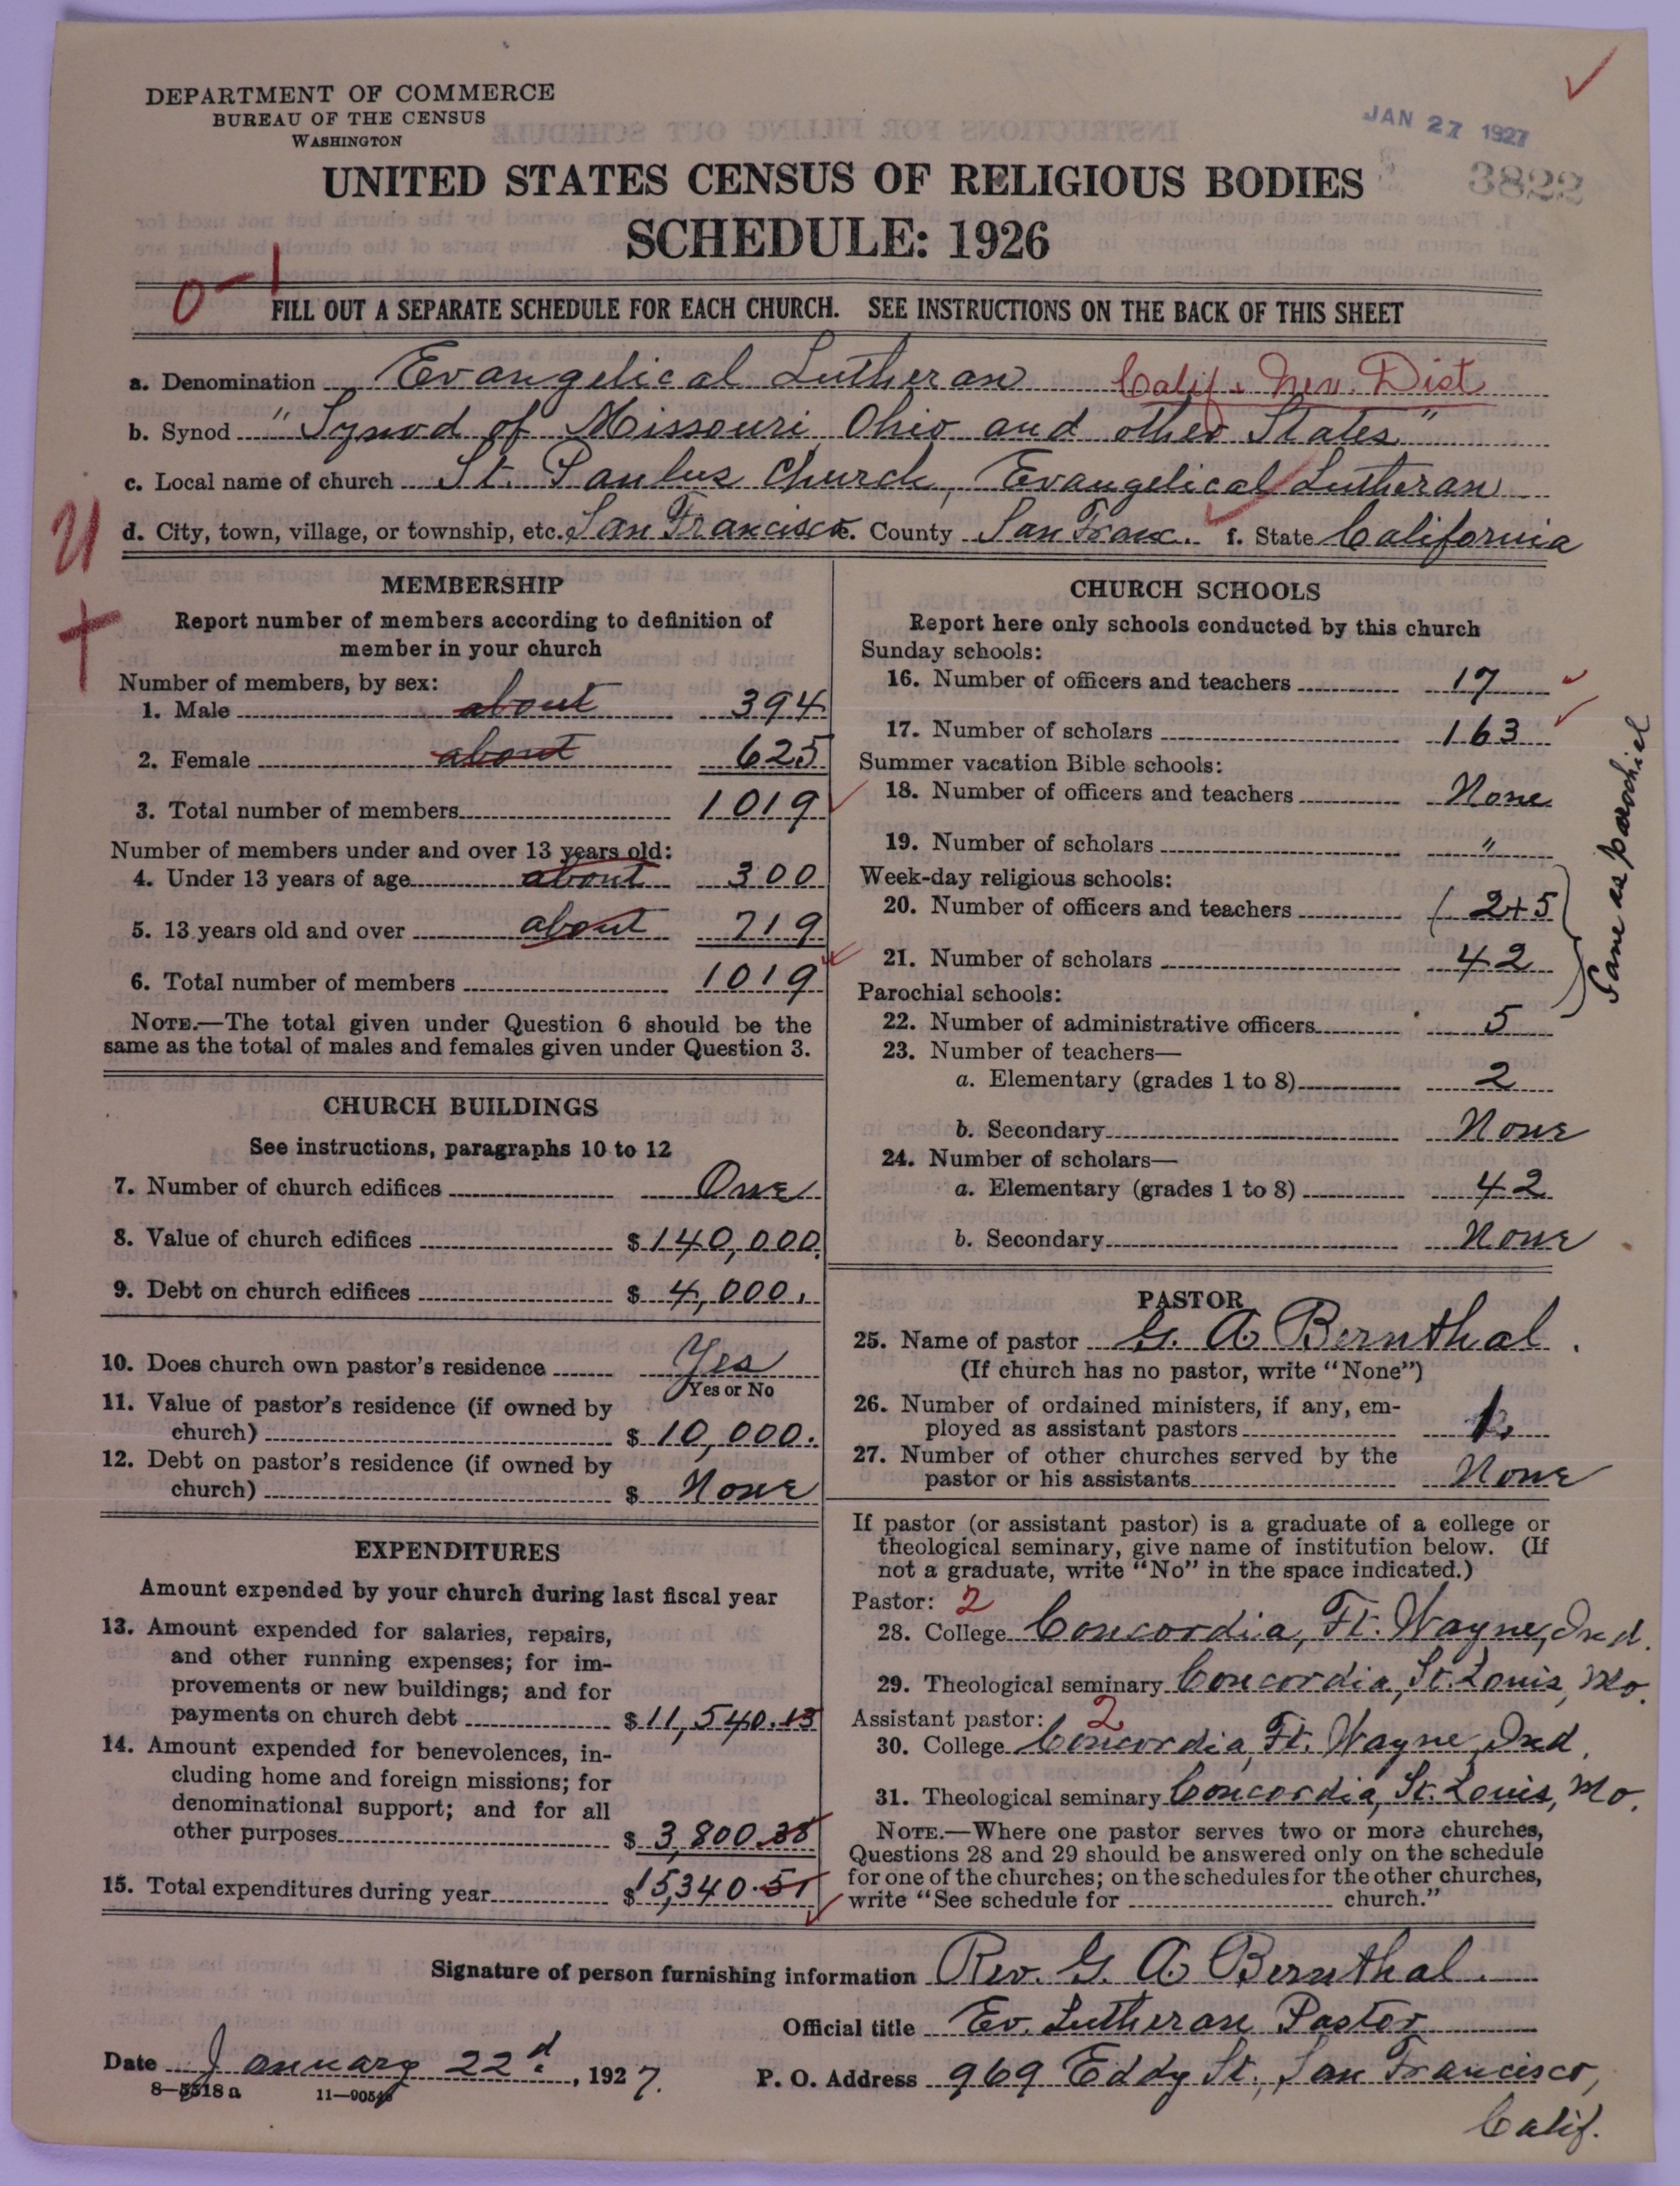 DEPARTMENT OF COMMERCE
BUREAU OF THE CENSUS
WASHINGTON
JAN 27 1927
3822
UNITED STATES CENSUS OF RELIGIOUS BODIES
SCHEDULE: 1926
0-1
FILL OUT A SEPARATE SCHEDULE FOR EACH CHURCH. SEE INSTRUCTIONS ON THE BACK OF THIS SHEET
a. Denomination Evangelical Lutheran Calif. & Nev. Dist
b. Synod "Synod of Missouri, Ohio and other States"
c. Local name of church St. Paulus Church, Evangelical Lutheran
d. City, town, village, or township, etc. San Francisco e. County San Franc. f. State California
MEMBERSHIP
Report number of members according to definition of
member in your church
Number of members, by sex:
1. Male about 394
2. Female about 625
3. Total number of members 1019
Number of members under and over 13 years old:
4. Under 13 years of age about 300
5. 13 years old and over about 719
6. Total number of members 1019
NOTE.—The total given under Question 6 should be the
same as the total of males and females given under Question 3.
CHURCH BUILDINGS
See instructions, paragraphs 10 to 12
7. Number of church edifices One
8. Value of church edifices $140,000.
9. Debt on church edifices $4,000.
10. Does church own pastor's residence Yes
Yes or No
11. Value of pastor's residence (if owned by
church) $10,000.
12. Debt on pastor's residence (if owned by
church) $ None
EXPENDITURES
Amount expended by your church during last fiscal year
13. Amount expended for salaries, repairs,
and other running expenses; for im-
provements or new buildings; and for
payments on church debt $11,540.13
14. Amount expended for benevolences, in-
cluding home and foreign missions; for
denominational support; and for all
other purposes $3,800.38
15. Total expenditures during year $15,340.51
CHURCH SCHOOLS
Report here only schools conducted by this church
Sunday schools:
16. Number of officers and teachers 17
17. Number of scholars 163
Summer vacation Bible schools:
18. Number of officers and teachers None
19. Number of scholars "
Week-day religious schools:
20. Number of officers and teachers ( 2+5
21. Number of scholars 42
Same as parochiel
Parochial schools:
22. Number of administrative officers 5
23. Number of teachers—
a. Elementary (grades 1 to 8) 2
b. Secondary None
24. Number of scholars—
a. Elementary (grades 1 to 8) 42
b. Secondary None
PASTOR
25. Name of pastor G. A. Bernthal.
(If church has no pastor, write "None")
26. Number of ordained ministers, if any, em-
ployed as assistant pastors 1.
27. Number of other churches served by the
pastor or his assistants None
If pastor (or assistant pastor) is a graduate of a college or
theological seminary, give name of institution below. (If
not a graduate, write "No" in the space indicated.)
Pastor: 2
28. College Concordia, Ft. Wayne, Ind.
29. Theological seminary Concordia, St. Louis, Mo.
Assistant pastor: 2
30. College Concordia, Ft. Wayne, Ind.
31. Theological seminary Concordia, St. Louis, Mo.
NOTE.—Where one pastor serves two or more churches,
Questions 28 and 29 should be answered only on the schedule
for one of the churches; on the schedules for the other churches,
write "See schedule for church."
Signature of person furnishing information Rev. G. A. Bernthal.
Official title Ev. Lutheran Pastor
Date January 22d., 1927.
P. O. Address 969 Eddy St., San Francisco,
Calif.
8—5518 a 11—9054